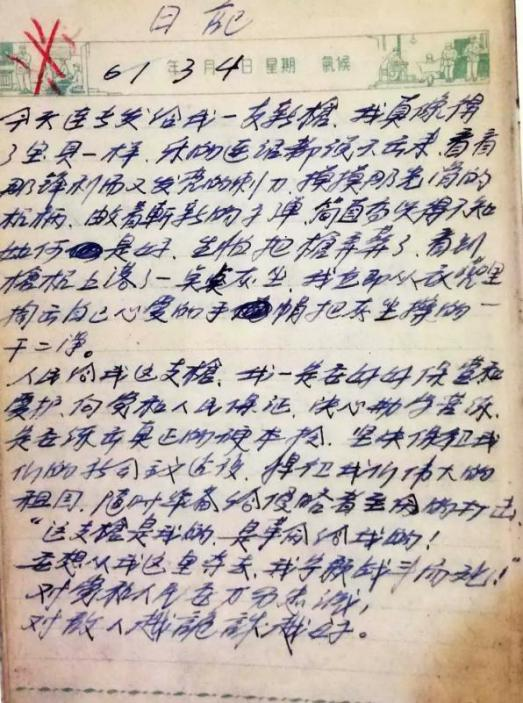 日记
61 年 3 月 4 日 星期 气候
今天连长发给我一支新枪,我真像得
了宝贝一样,乐的连话都说不出来,看看
那锋利而又发亮的刺刀,摸摸那光滑的
机柄,数着崭新的子弹,简直喜欢得不知
如何是好,生怕把枪弄葬了,看到
枪机上落了一点灰尘,我立即从衣袋里
掏出自己心爱的手帕把灰尘擦的一
干二净。
人民给我这支枪,我一定要好好保管和
爱护,向党和人民保证,决心勤学苦练,
定要练出真正的硬本领,坚决保卫我
们的社会主义建设,捍卫我们伟大的
祖国,随时准备给侵略者 的打击
“这支枪是我的,是革命给我的!
要想从我这里夺去,我宁愿战斗而死!”
对党和人民要万分忠诚,
对敌人越诡诈越好。